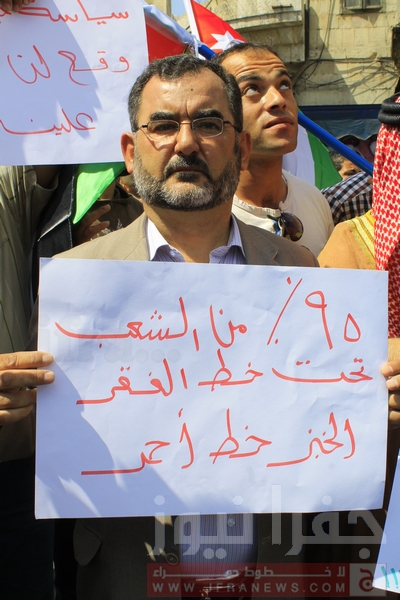 سياسة
وقع لن
علينا
٩٥٪ من الشعب
تحت خط الفقر
الخبز خط أحمر
جفرا نيوز
لا خطوط حمراء
WWW.JFRANEWS.COM